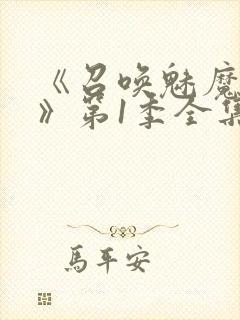 《召唤魅魔
》第1季全集
馬平安